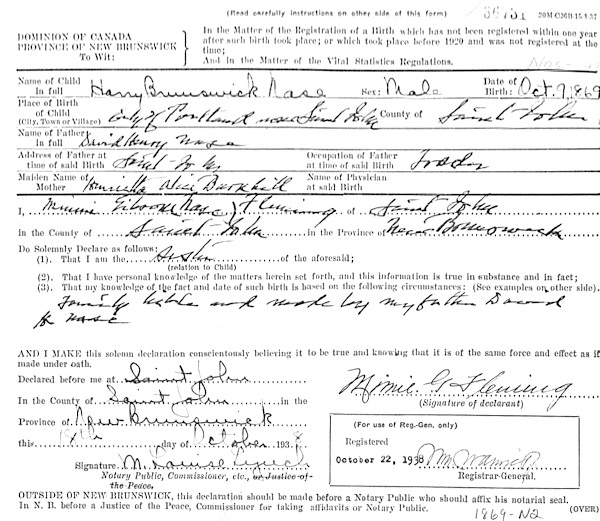 (Read carefully instructions on other side of this form) 36751 20M C26B-15-8-37
DOMINION OF CANADA
PROVINCE OF NEW BRUNSWICK
To Wit:
In the Matter of the Registration of a Birth which has not been registered within one year
after such birth took place; or which took place before 1920 and was not registered at the
time;
And in the Matter of the Vital Statistics Regulations.
Name of Child in full Harry Brunswick Nase Sex: Male Date of Birth: Oct. 9, 1869
Place of Birth of Child (City, Town or Village) City of Portland now Saint John County of Saint John
Name of Father in full David Henry Nase
Address of Father at time of said Birth Saint John Occupation of Father at time of said Birth
Maiden Name of Mother Henrietta Alice Name of Physician at said Birth
I, Minnie Nase Fleming of Saint John
In the County of Saint John in the Province of New Brunswick
Do Solemnly Declare as follows:
(1). That I am the Sister of the aforesaid;
(relation to Child)
(2). That I have personal knowledge of the matters herein set forth, and this information is true in substance and in fact;
(3). That my knowledge of the fact and date of such birth is based on the following circumstances: (See examples on other side).
Family bible and made by my father David
H Nase
AND I MAKE this solemn declaration conscientously believing it to be true and knowing that it is of the same force and effect as if
made under oath.
Declared before me at Saint John
In the County of Saint John in the
Province of New Brunswick
this day of October 1938
Signature
Notary Public, Commissioner, etc., or Justice of
the Peace.
Minnie G Fleming
(Signature of declarant)
(For use of Reg.-Gen. only)
Registered
October 22, 1938
Registrar-General.
OUTSIDE OF NEW BRUNSWICK, this declaration should be made before a Notary Public who should affix his notarial seal.
In N. B. before a Justice of the Peace, Commissioner for taking affidavits or Notary Public. (OVER)
1869-N2